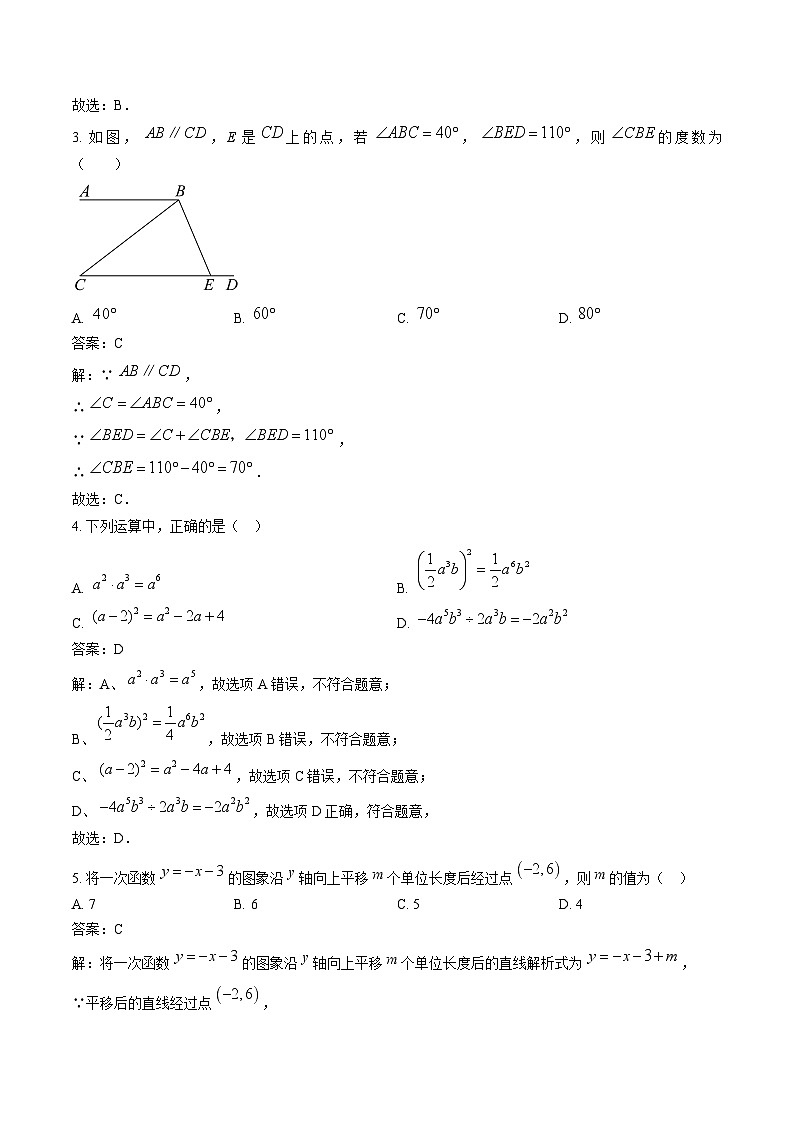 故选：B．
3. 如图， AB∥CD ，E 是 CD 上的点，若 ∠ABC=40° ， ∠BED=110° ，则 ∠CBE 的度数为
（　　）
A B
C E D
A. 40° B. 60° C. 70° D. 80°
答案：C
解：∵ AB∥CD ，
∴ ∠C=∠ABC=40° ，
∵ ∠BED=∠C+∠CBE，∠BED=110° ，
∴ ∠CBE=110°−40°=70° ．
故选：C．
4. 下列运算中，正确的是（　）
A. a²·a³=a⁶ B. (1/2 a³b)²=1/2 a⁶b²
C. (a−2)²=a²−2a+4 D. −4a⁵b³÷2a³b=−2a²b²
答案：D
解：A、 a²·a³=a⁵ ，故选项 A 错误，不符合题意；
B、 (1/2 a³b)²=1/4 a⁶b² ，故选项 B 错误，不符合题意；
C、 (a−2)²=a²−4a+4 ，故选项 C 错误，不符合题意；
D、 −4a⁵b³÷2a³b=−2a²b² ，故选项 D 正确，符合题意，
故选：D．
5. 将一次函数 y=−x−3 的图象沿 y 轴向上平移 m 个单位长度后经过点 (−2,6) ，则 m 的值为（　）
A. 7 B. 6 C. 5 D. 4
答案：C
解：将一次函数 y=−x−3 的图象沿 y 轴向上平移 m 个单位长度后的直线解析式为 y=−x−3+m ，
∵平移后的直线经过点 (−2,6) ，